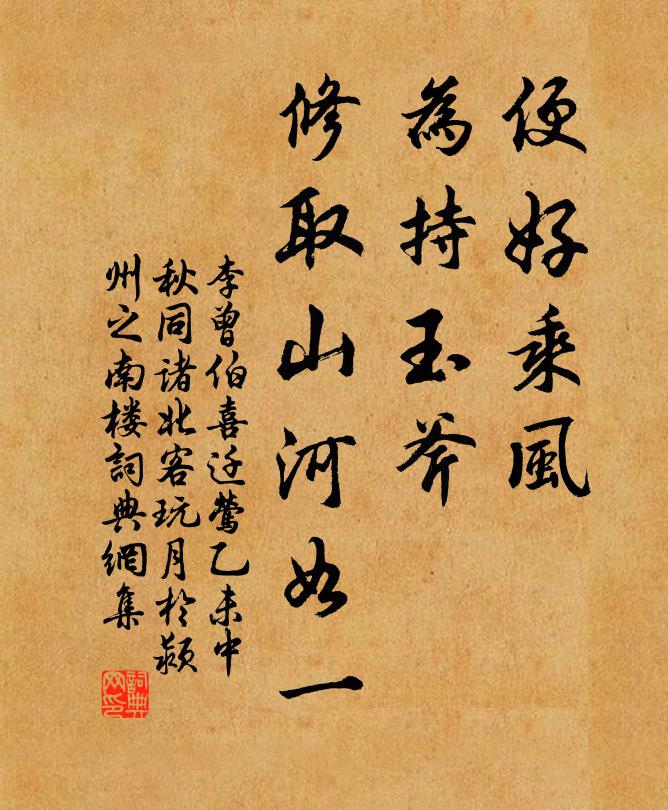 便好乘風
為持玉斧
修取山河如一
李曾伯喜迁鶯乙未中
秋同诸北客玩月於颍
州之南楼詞典網集
詞典
网印